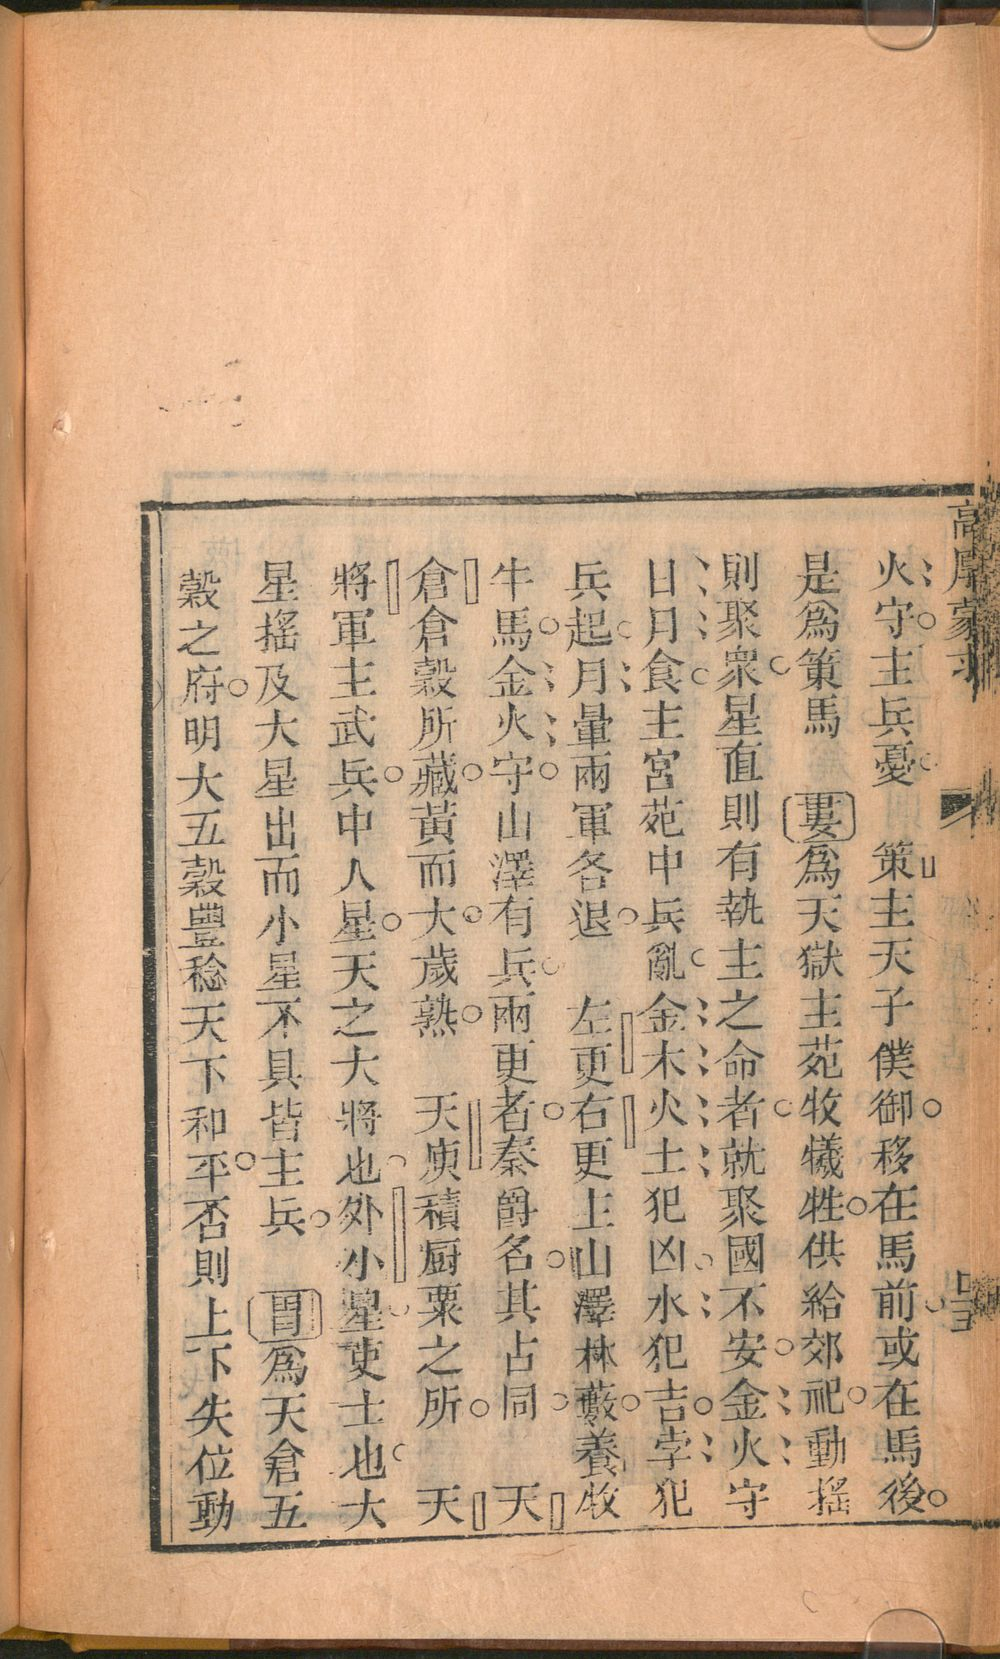 高厚蒙求
火守主兵憂　策主天子僕御移在馬前或在馬後
是爲策馬　婁爲天獄主苑牧犧牲供給郊祀動搖
則聚衆星直則有執主之命者就聚國不安金火守
日月食主宮苑中兵亂金木火土犯凶水犯吉孛犯
兵起月暈兩軍各退　左更右更主山澤林藪養牧
牛馬金火守山澤有兵兩更者秦爵名其占同　天
倉倉穀所藏黃而大歲熟　天庾積廚粟之所　天
將軍主武兵中人星天之大將也外小星吏士也大
星搖及大星出而小星不具皆主兵　胃爲天倉五
穀之府明大五穀豐稔天下和平否則上下失位動